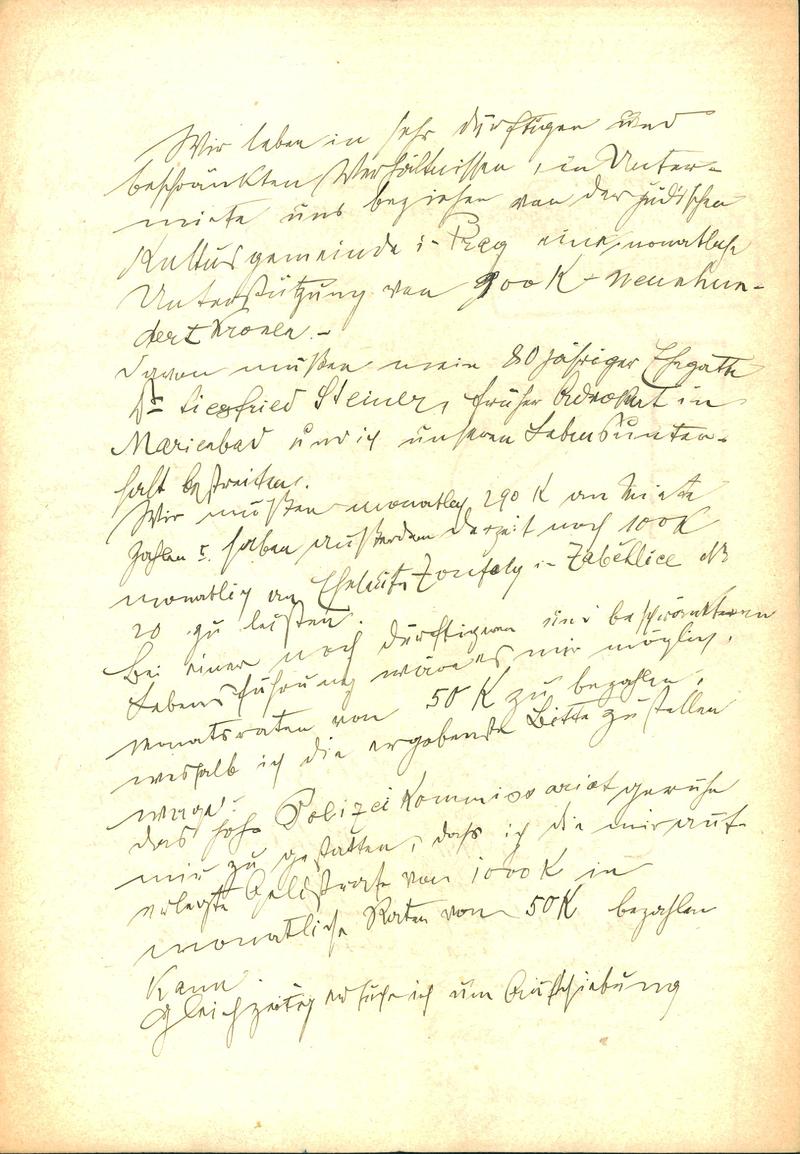 Wir leben in sehr dürftigen und
beschränkten Verhältnissen, in Unter-
miete und beziehen von der jüdischen
Kultusgemeinde i. Prag eine monatliche
Unterstützung von 900 K - neunhun-
dert Kronen. -
Davon müßen mein 80 jähriger Ehegatte
Dr Siegfried Steiner, früher Advokat in
Marienbad und ich unseren Lebensunter-
halt bestreiten.
Wir müßen monatlich 290 K an Miete
zahlen u. haben außerdem derzeit noch 100 K
monatlich an Eheleute in Záběhlice No
20 zu leisten.
Bei einer noch dürftigeren und beschränkteren
Lebensführung wäre es mir möglich,
Monatsraten von 50 K zu bezahlen,
weshalb ich die ergebenste Bitte zu stellen
wage:
das hohe Polizeikommissariat geruhe
mir zu gestatten, daß ich die mir auf-
erlegte Geldstrafe von 1000 K in
monatliche Raten von 50 K bezahlen
kann.
Gleichzeitig ersuche ich um Aufschiebung